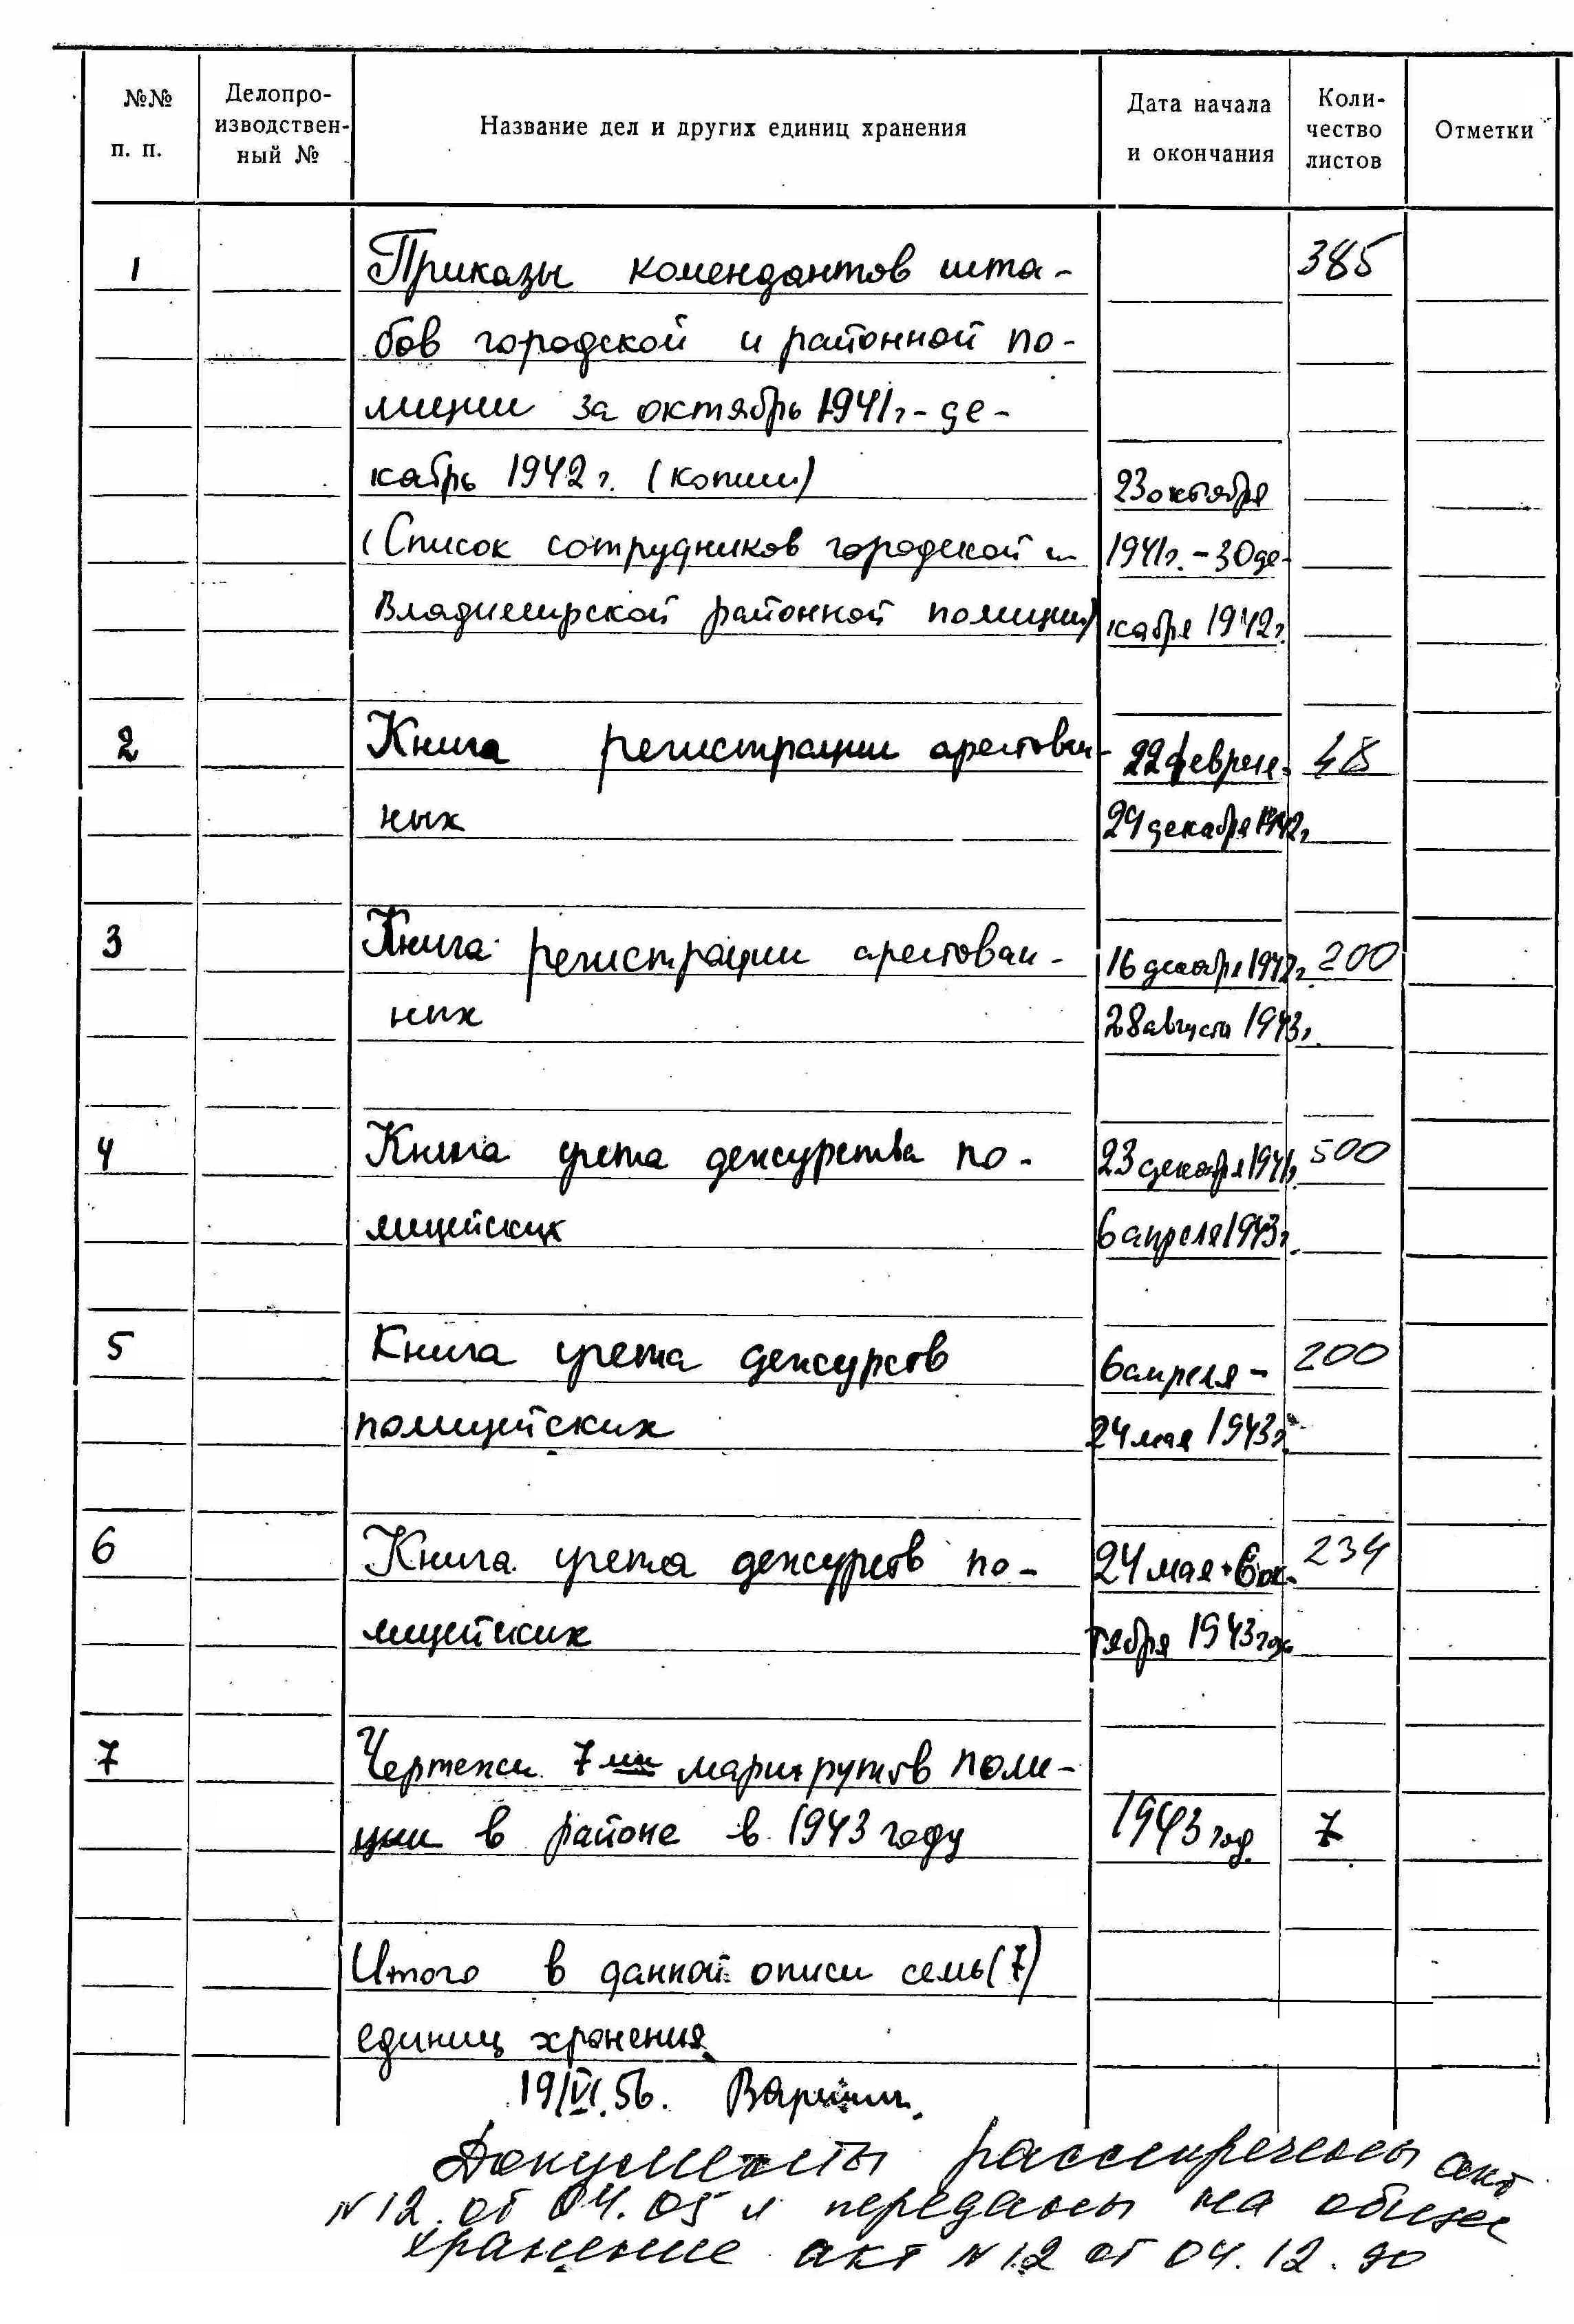 №№ п. п.
Делопро-
изводствен-
ный №
Название дел и других единиц хранения
Дата начала
и окончания
Коли-
чество
листов
Отметки
1 Приказы комендантов шта- 385
бов городской и районной по-
лиции за октябрь 1941г-де-
кабрь 1942г. (копии) 23 октября
(Список сотрудников городской и 1941г.-30 де-
Владимирской районной полиции) кабря 1942г.
2 Книга регистрации арестован- 22 февраля- 48
ных 29 декабря 1942г
3 Книга регистрации арестован- 16 декабря 1942г. 200
ных 28 августа 1943г.
4 Книга учета дежурства по- 23 декабря 1941г. 500
лицейских 6 апреля 1943г.
5 Книга учета дежурств 6 апреля- 200
полицейских 24 мая 1943г.
6 Книга учета дежурств по- 24 мая-6 ок- 234
лицейских тября 1943 года
7 Чертежи 7ми маршрутов поли-
ции в районе в 1943 году 1943 год 7
Итого в данной описи семь (7)
единиц хранения
19/VI.56.
Документы рассекречены акт
N12 от 04.05 и переданы на общее
хранение акт N12 от 04.12.90